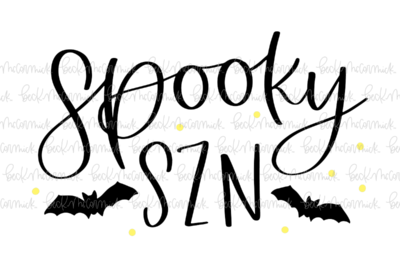 Spooky
SZN